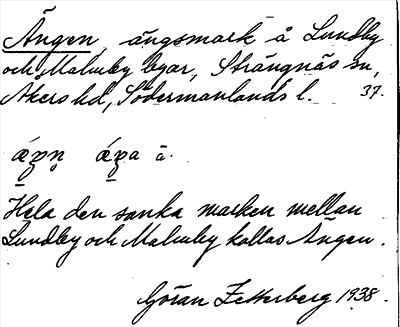 Ängen, ängsmark å Lundby
och Malmby byar, Strängnäs sn,
Åkers hd, Södermanlands l. 37.
Hela den sanka marken mellan
Lundby och Malmby kallas Ängen.
Göran Zetterberg 1938.